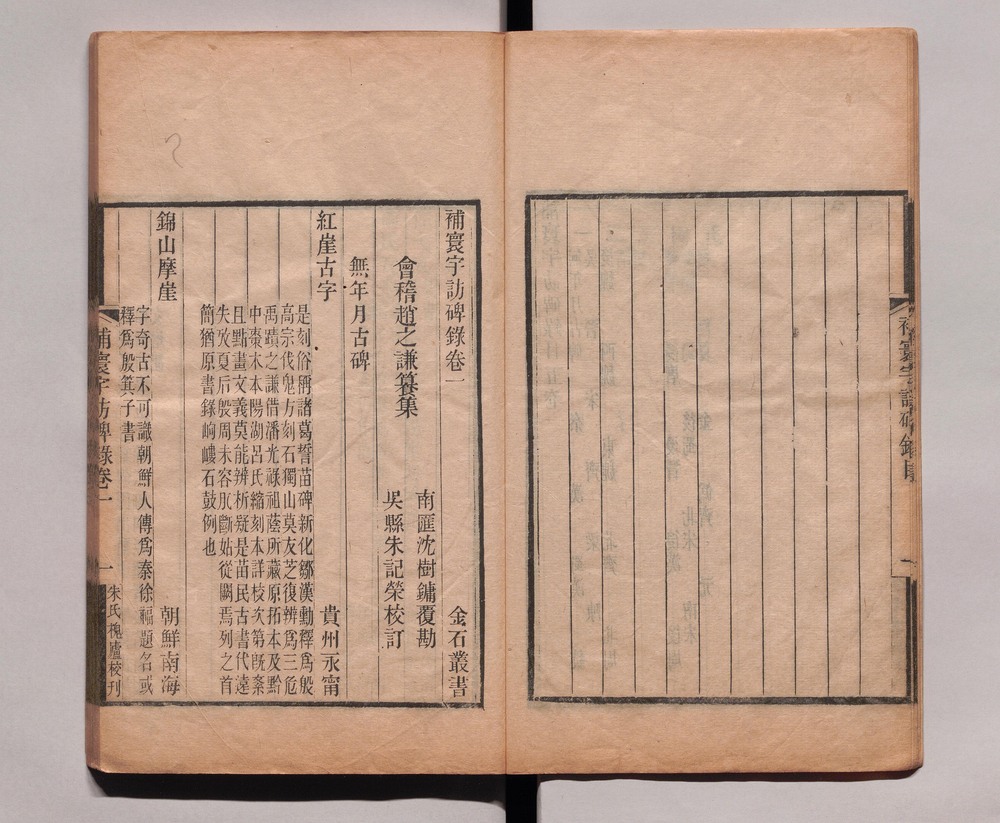 補寰宇訪碑錄卷一
金石叢書
會稽趙之謙纂集
南匯沈樹鏞覆勘
吳縣朱記榮校訂
無年月古碑
紅崖古字
貴州永甯
是刻俗稱諸葛誓苗碑新化鄒漢勛釋爲殷
高宗伐鬼方刻石獨山莫友芝復辨爲三危
禹蹟之謙借潘光祿祖蔭所藏原拓本及黔
中棗木本陽湖呂氏縮刻本詳校次第旣紊
且點畫文義莫能辨析疑是苗民古書代遠
失攷夏后殷周未容肊斷姑從闕焉列之首
簡猶原書錄岣嶁石鼓例也
錦山摩崖
朝鮮南海
字奇古不可識朝鮮人傳爲秦徐福題名或
釋爲殷箕子書
補寰宇訪碑錄卷一
一
朱氏槐廬校刊
補寰宇訪碑錄目
一